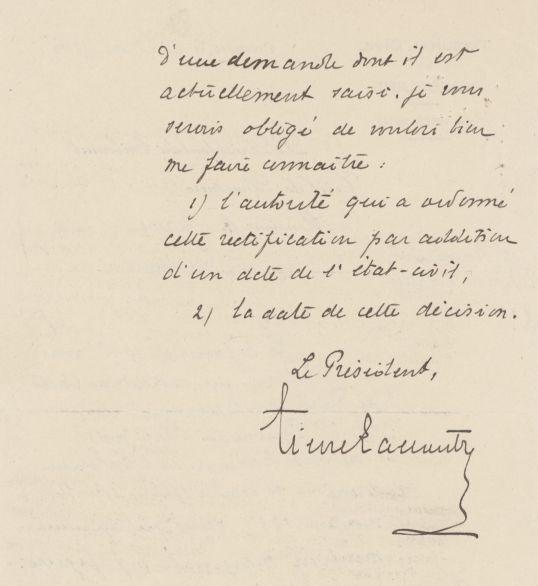 d'une demande dont il est
actuellement saisi. je vous
serais obligé de vouloir bien
me faire connaître :
1) l'autorité qui a ordonné
cette rectification par addition
d'un acte de l'état-civil,
2) la date de cette décision.
Le Président,